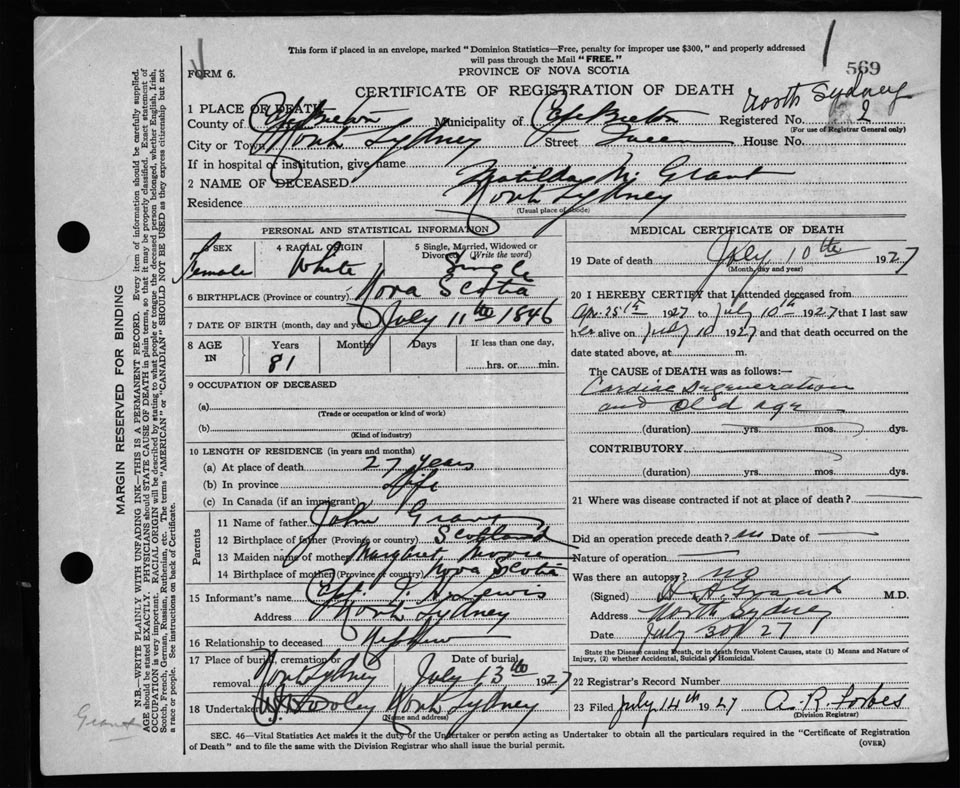 This form if placed in an envelope, marked "Dominion Statistics—Free, penalty for improper use $300," and properly addressed
will pass through the Mail "FREE."
FORM 6.
PROVINCE OF NOVA SCOTIA
569
CERTIFICATE OF REGISTRATION OF DEATH
North Sydney
1 PLACE OF DEATH
County of Cape Breton Municipality of Cape Breton Registered No. 2
(For use of Registrar General only)
City or Town North Sydney Street Queen House No.
If in hospital or institution, give name
2 NAME OF DECEASED Matilda M. Grant
Residence North Sydney
(Usual place of abode)
PERSONAL AND STATISTICAL INFORMATION
3 SEX Female
4 RACIAL ORIGIN White
5 Single, Married, Widowed or
Divorced (Write the word) Single
6 BIRTHPLACE (Province or country) Nova Scotia
7 DATE OF BIRTH (month, day and year) July 11th 1846
8 AGE IN Years Months Days If less than one day,
81 hrs. or min.
9 OCCUPATION OF DECEASED
(a)
(Trade or occupation or kind of work)
(b)
(Kind of industry)
10 LENGTH OF RESIDENCE (in years and months)
(a) At place of death 27 years
(b) In province Life
(c) In Canada (if an immigrant)
Parents
11 Name of father John Grant
12 Birthplace of father (Province or country) Scotland
13 Maiden name of mother Margaret Moore
14 Birthplace of mother (Province or country) Nova Scotia
15 Informant's name Lewis
Address North Sydney
16 Relationship to deceased Nephew
17 Place of burial, cremation or Date of burial
removal North Sydney July 13th 1927
18 Undertaker Dooley North Sydney
(Name and address)
MEDICAL CERTIFICATE OF DEATH
19 Date of death July 10th 1927
(Month, day and year)
20 I HEREBY CERTIFY that I attended deceased from
Apr 25th 1927 to July 10th 1927 that I last saw
her alive on July 10 1927 and that death occurred on the
date stated above, at m.
The CAUSE of DEATH was as follows:
Cardiac Degeneration
and Old age
(duration) yrs. mos. dys.
CONTRIBUTORY
(duration) yrs. mos. dys.
21 Where was disease contracted if not at place of death?
Did an operation precede death? no Date of
Nature of operation
Was there an autopsy? no
(Signed) Grant M.D.
Address North Sydney
Date July 30/27
State the Disease causing Death, or in death from Violent Causes, state (1) Means and Nature of
Injury, (2) whether Accidental, Suicidal or Homicidal.
22 Registrar's Record Number
23 Filed July 14th 1927 A. R. Forbes
(Division Registrar)
SEC. 46—Vital Statistics Act makes it the duty of the Undertaker or person acting as Undertaker to obtain all the particulars required in the "Certificate of Registration
of Death" and to file the same with the Division Registrar who shall issue the burial permit.
(OVER)
MARGIN RESERVED FOR BINDING
N.B.—WRITE PLAINLY WITH UNFADING INK—THIS IS A PERMANENT RECORD. Every item of information should be carefully supplied.
AGE should be stated EXACTLY. PHYSICIANS should STATE CAUSE OF DEATH in plain terms, so that it may be properly classified. Exact statement of
OCCUPATION is very important. RACIAL ORIGIN will be described by stating to what people or tongue the deceased person belonged, whether English, Irish,
Scotch, French, German, Russian, Ruthenian, etc. The terms "AMERICAN" or "CANADIAN" SHOULD NOT BE USED as they express citizenship but not
a race or people. See instructions on back of Certificate.
Grant